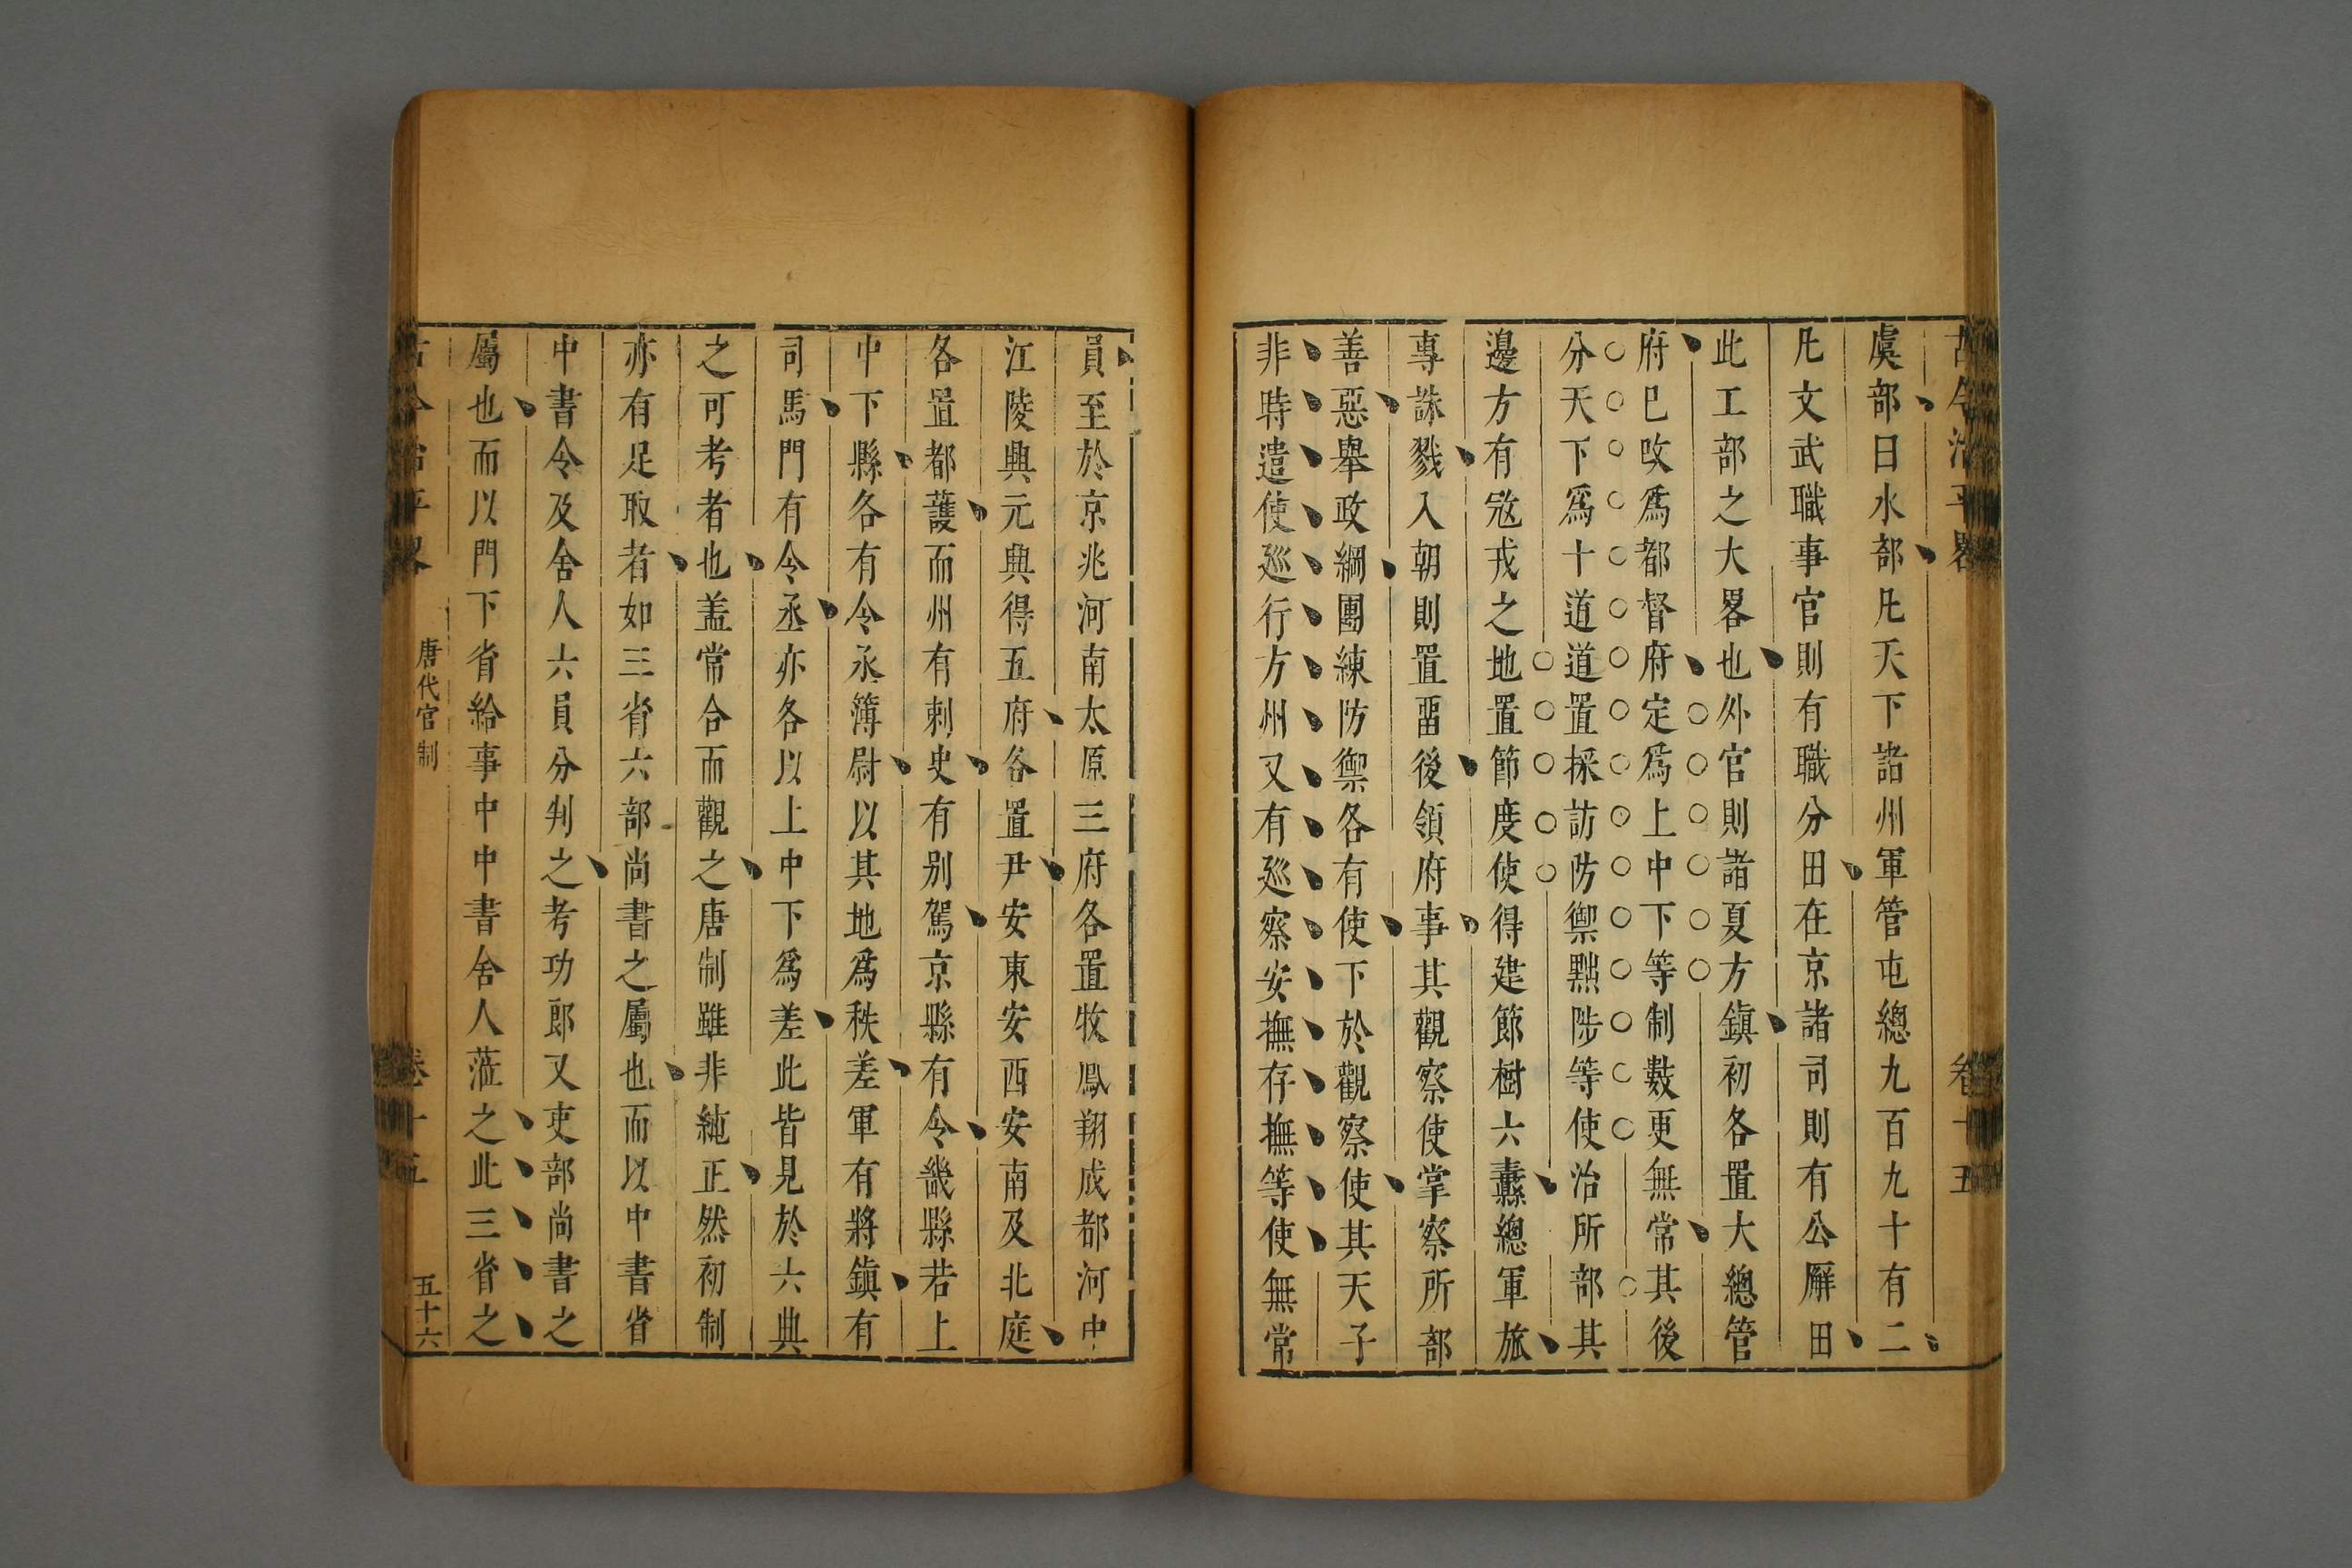 古今治平畧 卷十五
虞部曰水部凡天下諸州軍管屯總九百九十有二
凡文武職事官則有職分田在京諸司則有公廨田
此工部之大畧也外官則諸夏方鎮初各置大總管
府巳改爲都督府定爲上中下等制數更無常其後
分天下爲十道道置採訪防禦黜陟等使治所部其
邊方有寇戎之地置節度使得建節樹六纛總軍旅
專誅戮入朝則置畱後領府事其觀察使掌察所部
善惡舉政綱團練防禦各有使下於觀察使其天子
非時遣使廵行方州又有廵察安撫存撫等使無常
員至於京兆河南太原三府各置牧鳳翔成都河中
江陵興元興得五府各置尹安東安西安南及北庭
各置都護而州有刺史有别駕京縣有令畿縣若上
中下縣各有令丞簿尉以其地爲秩差軍有將鎮有
司馬門有令丞亦各以上中下爲差此皆見於六典
之可考者也盖常合而觀之唐制雖非純正然初制
亦有足取者如三省六部尚書之屬也而以中書省
中書令及舍人六員分判之考功郎又吏部尚書之
屬也而以門下省給事中中書舍人蒞之此三省之
古今治平畧 唐代官制 卷十五 五十六